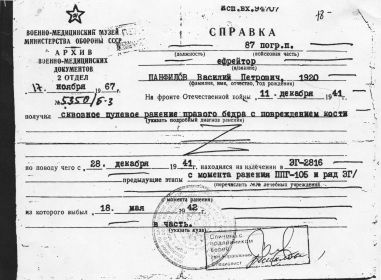 всп.вх.94707
18-
ВОЕННО-МЕДИЦИНСКИЙ МУЗЕЙ
МИНИСТЕРСТВА ОБОРОНЫ СССР
АРХИВ
ВОЕННО-МЕДИЦИНСКИХ
ДОКУМЕНТОВ
2 ОТДЕЛ
17. ноября 1967.
№ 5350/5-3
СПРАВКА
87 погр.п.
(должность) (войсковая часть)
ефрейтор
(звание)
ПАНФИЛОВ Василий Петрович, 1920
(фамилия, имя, отчество, год рождения)
На фронте Отечественной войны 11. декабря 1941г.
получил сквозное пулевое ранение правого бедра с повреждением кости
(указать подробный диагноз ранения)
по поводу чего с 28. декабря 1941г. находился на излечении в ЭГ-2816
с момента ранения ППГ-105 и ряд ЭГ/
предыдущие этапы
(перечислить все лечебные учреждения
с момента ранения)
из которого выбыл 18. мая 1942 г.
в часть.
(указать куда)
С подлинником
верно